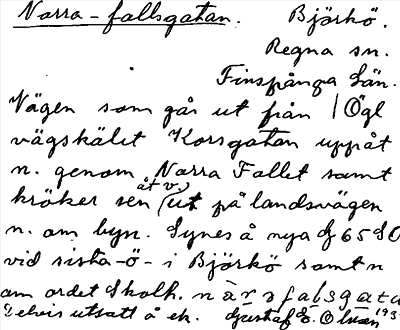 Norra-fallsgatan. Björkö.
Regna sn.
Finspånga län.
Vägen som går ut från | Ögl
vägskälet Korsgatan uppåt
n. genom Norra Fallet samt
kröker sen åt v. ut på landsvägen
n. om byn. Synes å nya 65 SO
vid sista -ö- i Björkö samt n
om ordet Skolh.
Delvis utsatt å ek. Gustaf